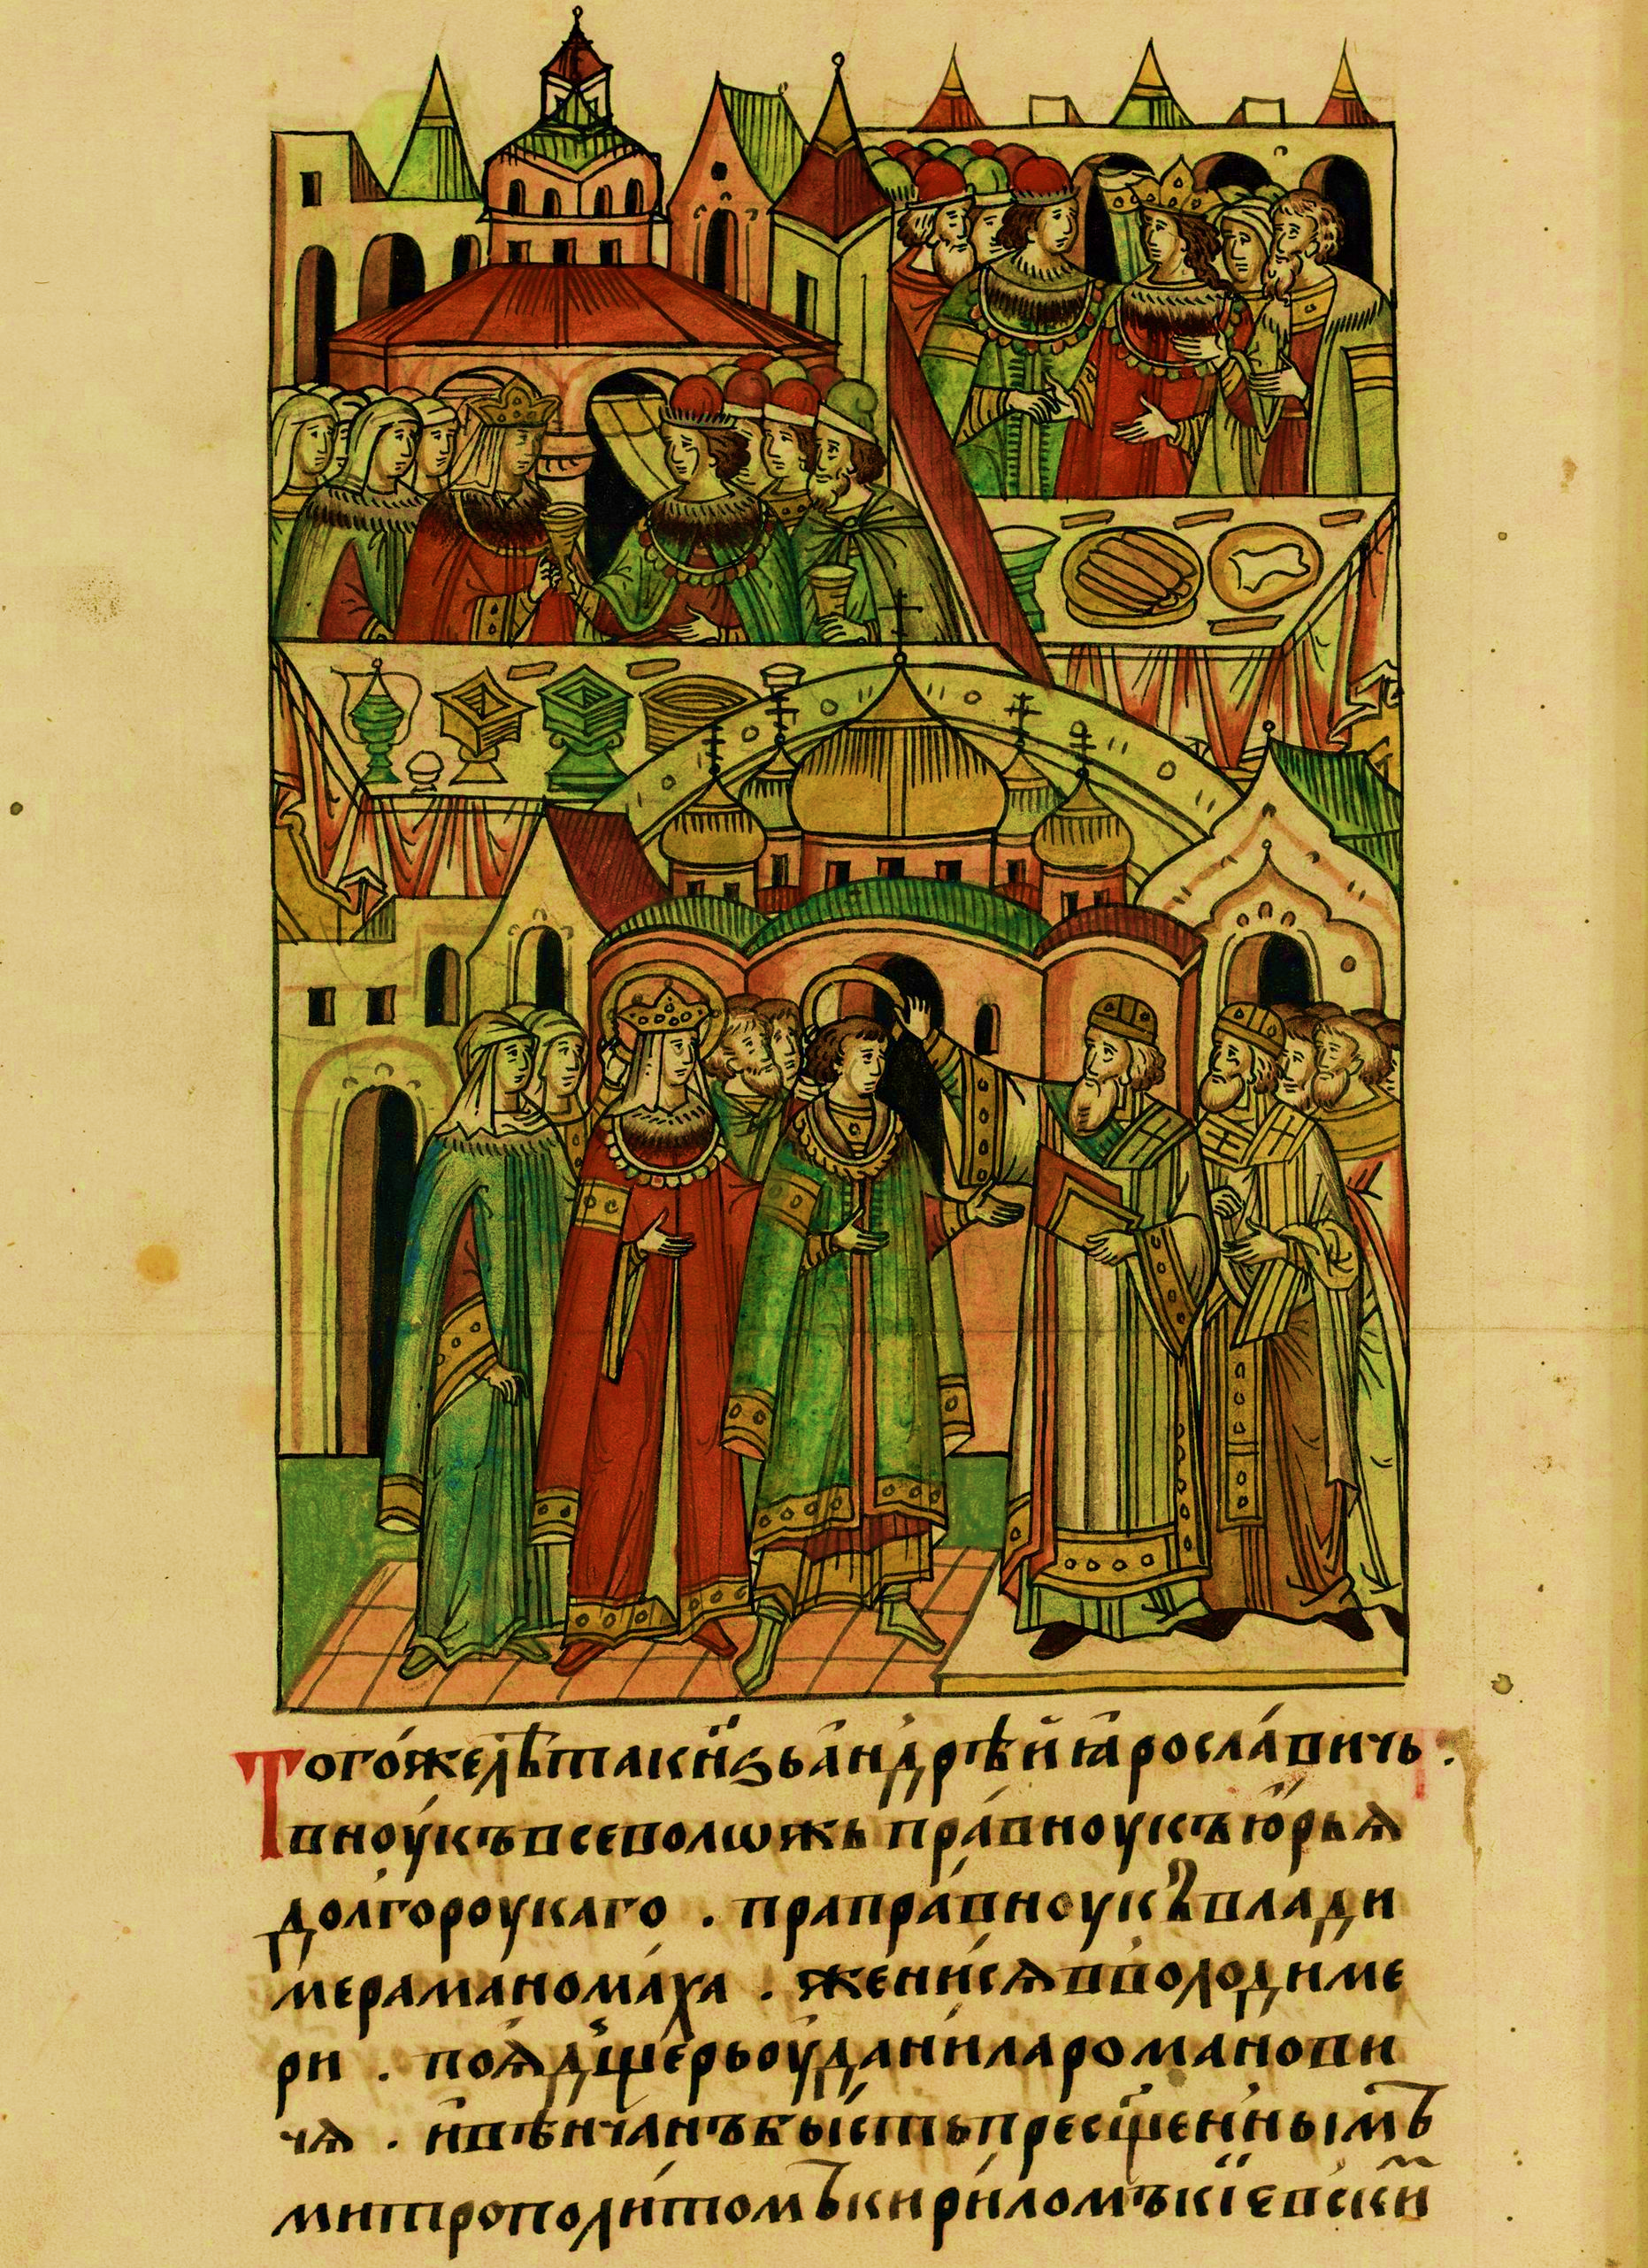 Того́же лѣта кн҃зь а҆ндрѣ́й ꙗ҆росла́вичь .
вноу́къ всеволѡжь пра́вноукъ ю҆́рьѧ
долгороукаго . прапра́вноукъ влади
мера мано́ма́ха . жени́сѧ в воло́диме
ри . поѧ̀ дще́рь оу҆ дани́ла рома́нови
чѧ . и҆ вѣ́нчанъ бы́сть пресщ҃е́нны́мъ
митрополи́томъ кири́ломъ кі́евски